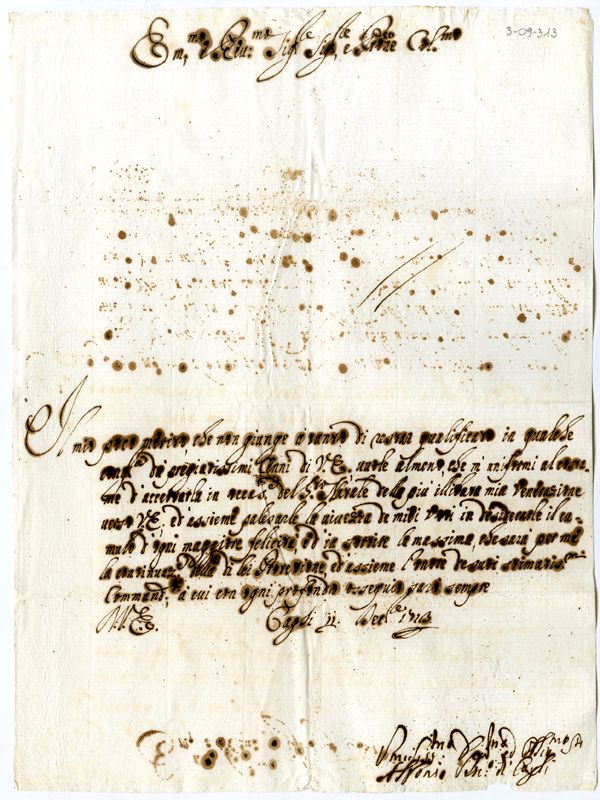 3-09-313
Em.mo e Rev.mo Sig.re Sig.re, e Prone Col.mo
Il mio poco merito che non giunge a tanto di restar qualificato in qualche
di pregiatissimi Cenni di V.E. vuole almeno, che m'uniformi al costu-
me d'accertarla in occas.e del S.to Natale della più illibata mia Venerazione
verso V.E. ed assieme palesarle la vivezza de miei voti in desiderarle il cu-
mulo d'ogni maggiore felicità, ed in sortire la massima, che sarà per me
la continuaz.e della di lei Protezione, ed assieme l'onore de suoi stimatis.mi
Command.ti, a cui con ogni profondo ossequio sarò sempre
D.V.E.
Cagli 11. Xbre
Alfonso di Cagli